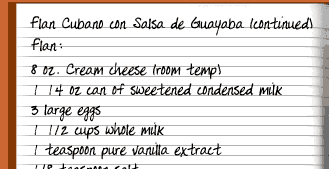 Flan Cubano con Salsa de Guayaba (continued)
Flan:
8 oz. Cream cheese (room temp)
1 14 oz can of sweetened condensed milk
3 large eggs
1 1/2 cups whole milk
1 teaspoon pure vanilla extract
1/8 teaspoon salt